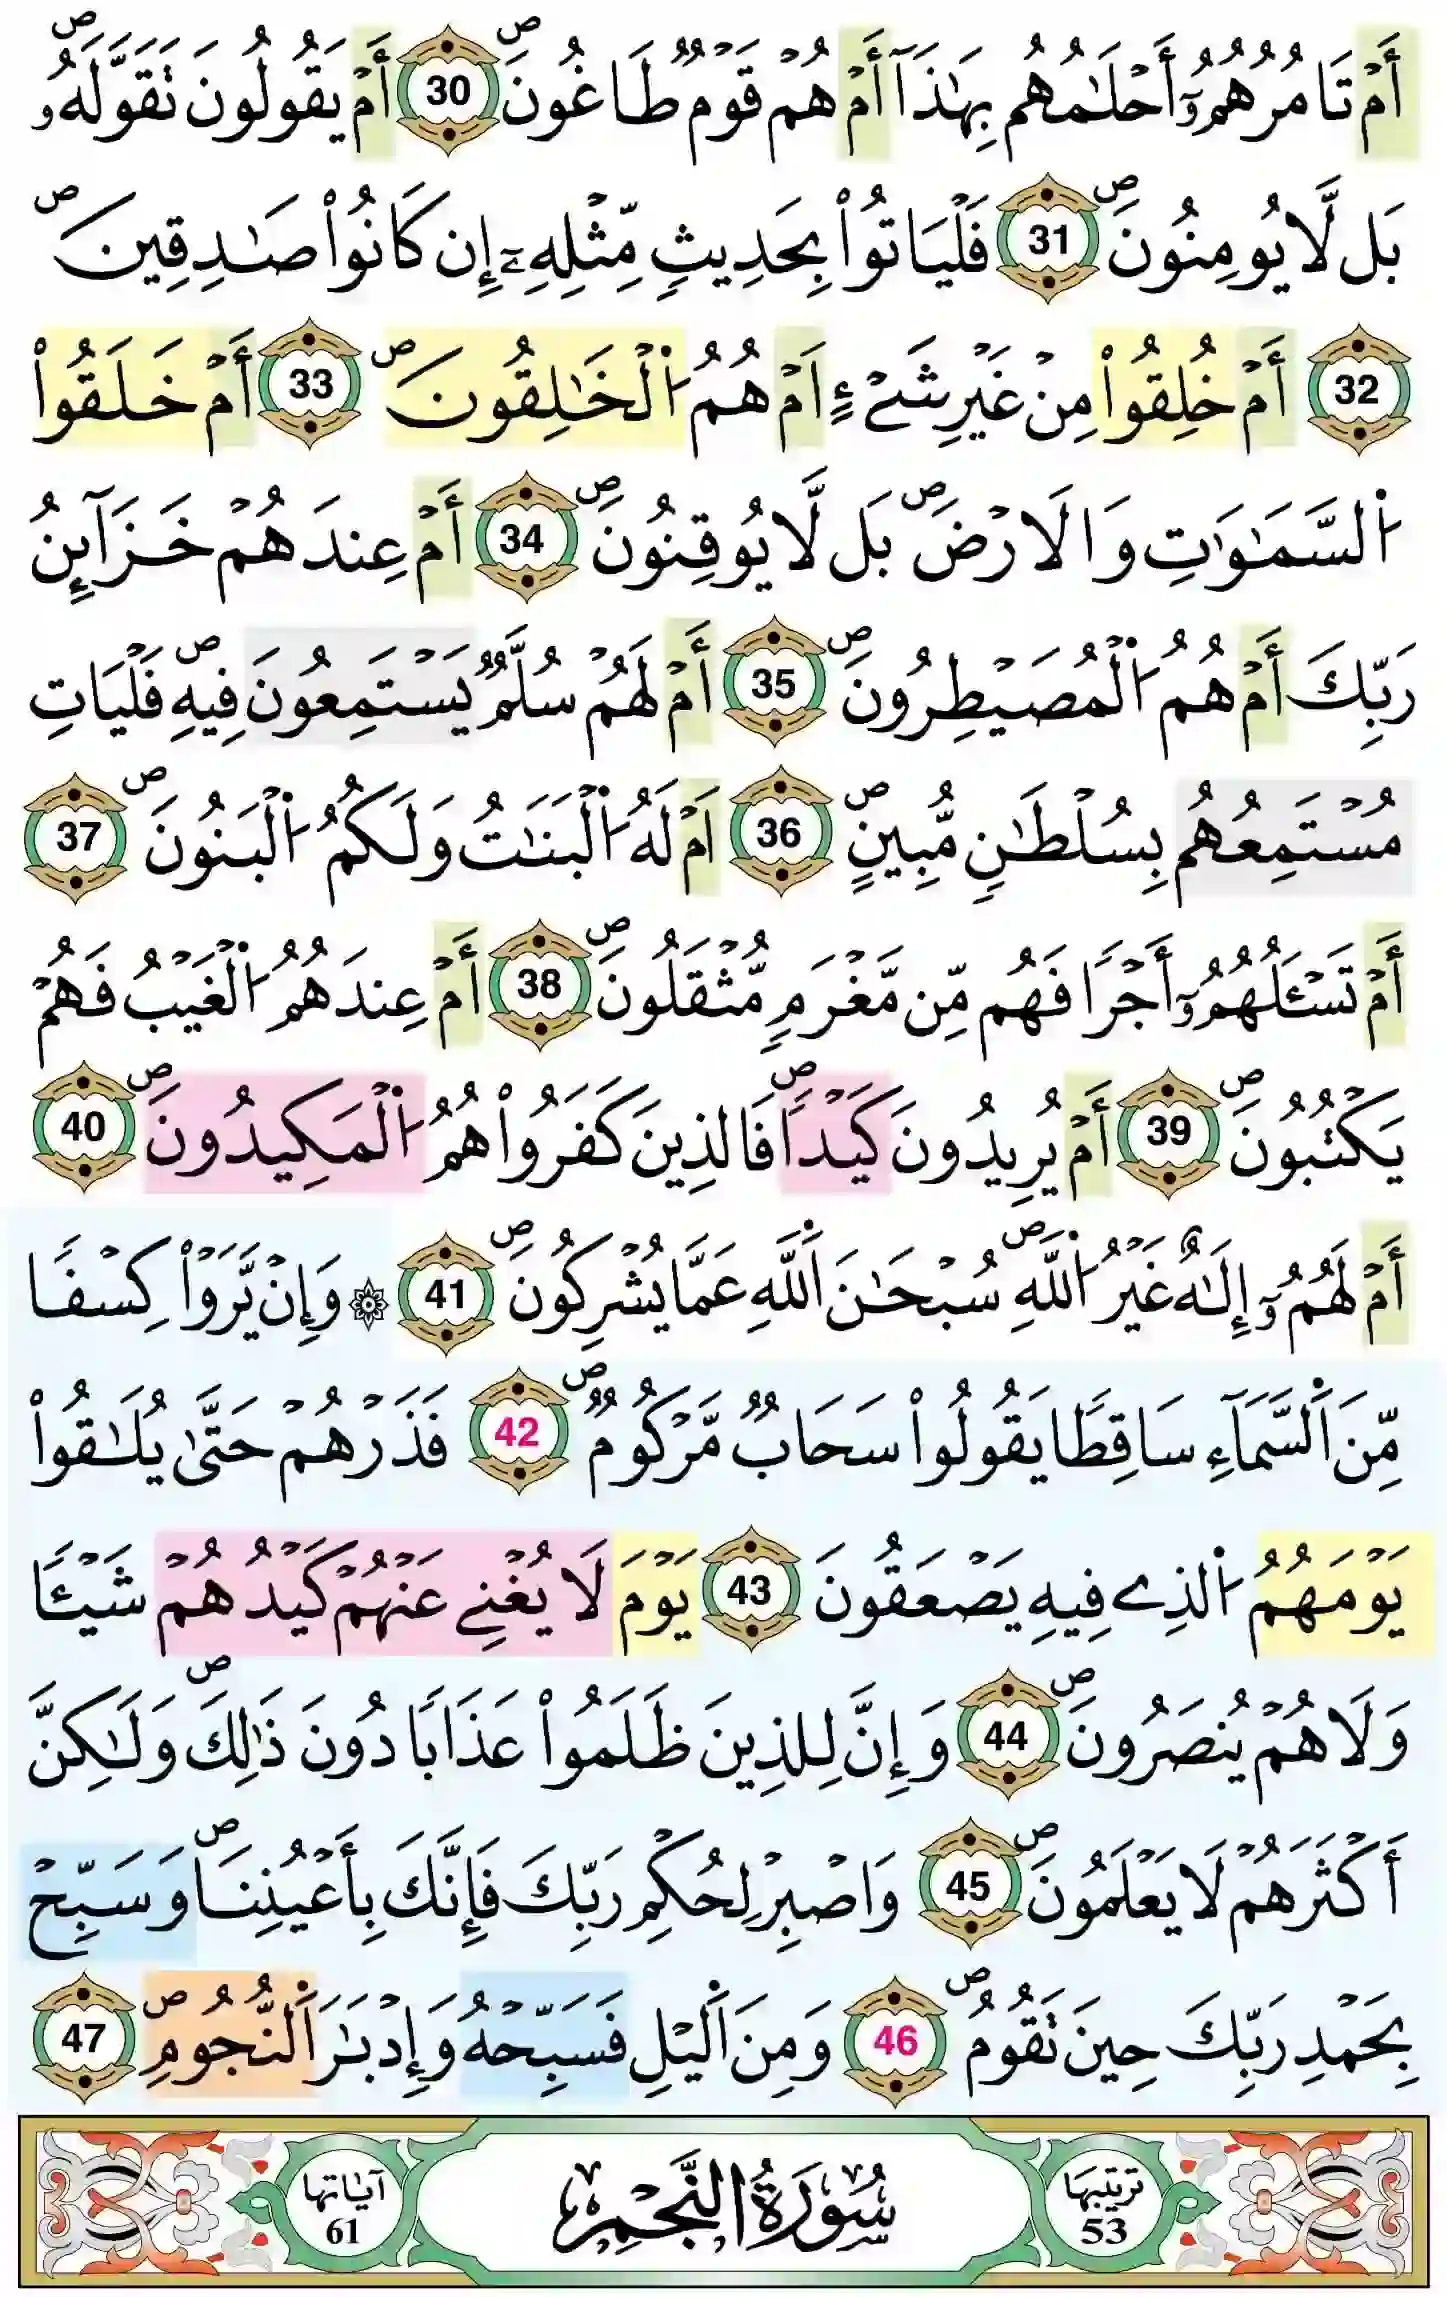 أَمْ تَامُرُهُمُۥٓ أَحْلَٰمُهُم بِهَٰذَآ أَمْ هُمْ قَوْمٞ طَاغُونَۖ 30 أَمْ يَقُولُونَ تَقَوَّلَهُۥ
بَل لَّا يُومِنُونَۖ 31 فَلْيَاتُواْ بِحَدِيثٖ مِّثْلِهِۦٓ إِن كَانُواْ صَٰدِقِينَۖ
32 أَمْ خُلِقُواْ مِنْ غَيْرِ شَےْءٍ اَمْ هُمُ اُ۬لْخَٰلِقُونَۖ 33 أَمْ خَلَقُواْ
اُ۬لسَّمَٰوَٰتِ وَالَارْضَۖ بَل لَّا يُوقِنُونَۖ 34 أَمْ عِندَهُمْ خَزَآئِنُ
رَبِّكَ أَمْ هُمُ اُ۬لْمُصَيْطِرُونَۖ 35 أَمْ لَهُمْ سُلَّمٞ يَسْتَمِعُونَ فِيهِۖ فَلْيَاتِ
مُسْتَمِعُهُم بِسُلْطَٰنٖ مُّبِينٍۖ 36 اَمْ لَهُ اُ۬لْبَنَٰتُ وَلَكُمُ اُ۬لْبَنُونَۖ 37
أَمْ تَسْـَٔلُهُمُۥٓ أَجْراٗ فَهُم مِّن مَّغْرَمٖ مُّثْقَلُونَۖ 38 أَمْ عِندَهُمُ اُ۬لْغَيْبُ فَهُمْ
يَكْتُبُونَۖ 39 أَمْ يُرِيدُونَ كَيْداٗۖ فَالذِينَ كَفَرُواْ هُمُ اُ۬لْمَكِيدُونَۖ 40
أَمْ لَهُمُۥٓ إِلَٰهٌ غَيْرُ اُ۬للَّهِۖ سُبْحَٰنَ اَ۬للَّهِ عَمَّا يُشْرِكُونَۖ 41 ۞ وَإِنْ يَّرَوْاْ كِسْفاٗ
مِّنَ اَ۬لسَّمَآءِ سَاقِطاٗ يَقُولُواْ سَحَابٞ مَّرْكُومٞۖ 42 فَذَرْهُمْ حَتَّىٰ يُلَٰقُواْ
يَوْمَهُمُ اُ۬لذِے فِيهِ يَصْعَقُونَ 43 يَوْمَ لَا يُغْنِے عَنْهُمْ كَيْدُهُمْ شَيْـٔاٗ
وَلَا هُمْ يُنصَرُونَۖ 44 وَإِنَّ لِلذِينَ ظَلَمُواْ عَذَاباٗ دُونَ ذَٰلِكَۖ وَلَٰكِنَّ
أَكْثَرَهُمْ لَا يَعْلَمُونَۖ 45 وَاصْبِرْ لِحُكْمِ رَبِّكَ فَإِنَّكَ بِأَعْيُنِنَاۖ وَسَبِّحْ
بِحَمْدِ رَبِّكَ حِينَ تَقُومُۖ 46 وَمِنَ اَ۬ليْلِ فَسَبِّحْهُ وَإِدْبَٰرَ اَ۬لنُّجُومِۖ 47
ترتيبها 53 سُورَةُ النَّجْمِ آيَاتها 61